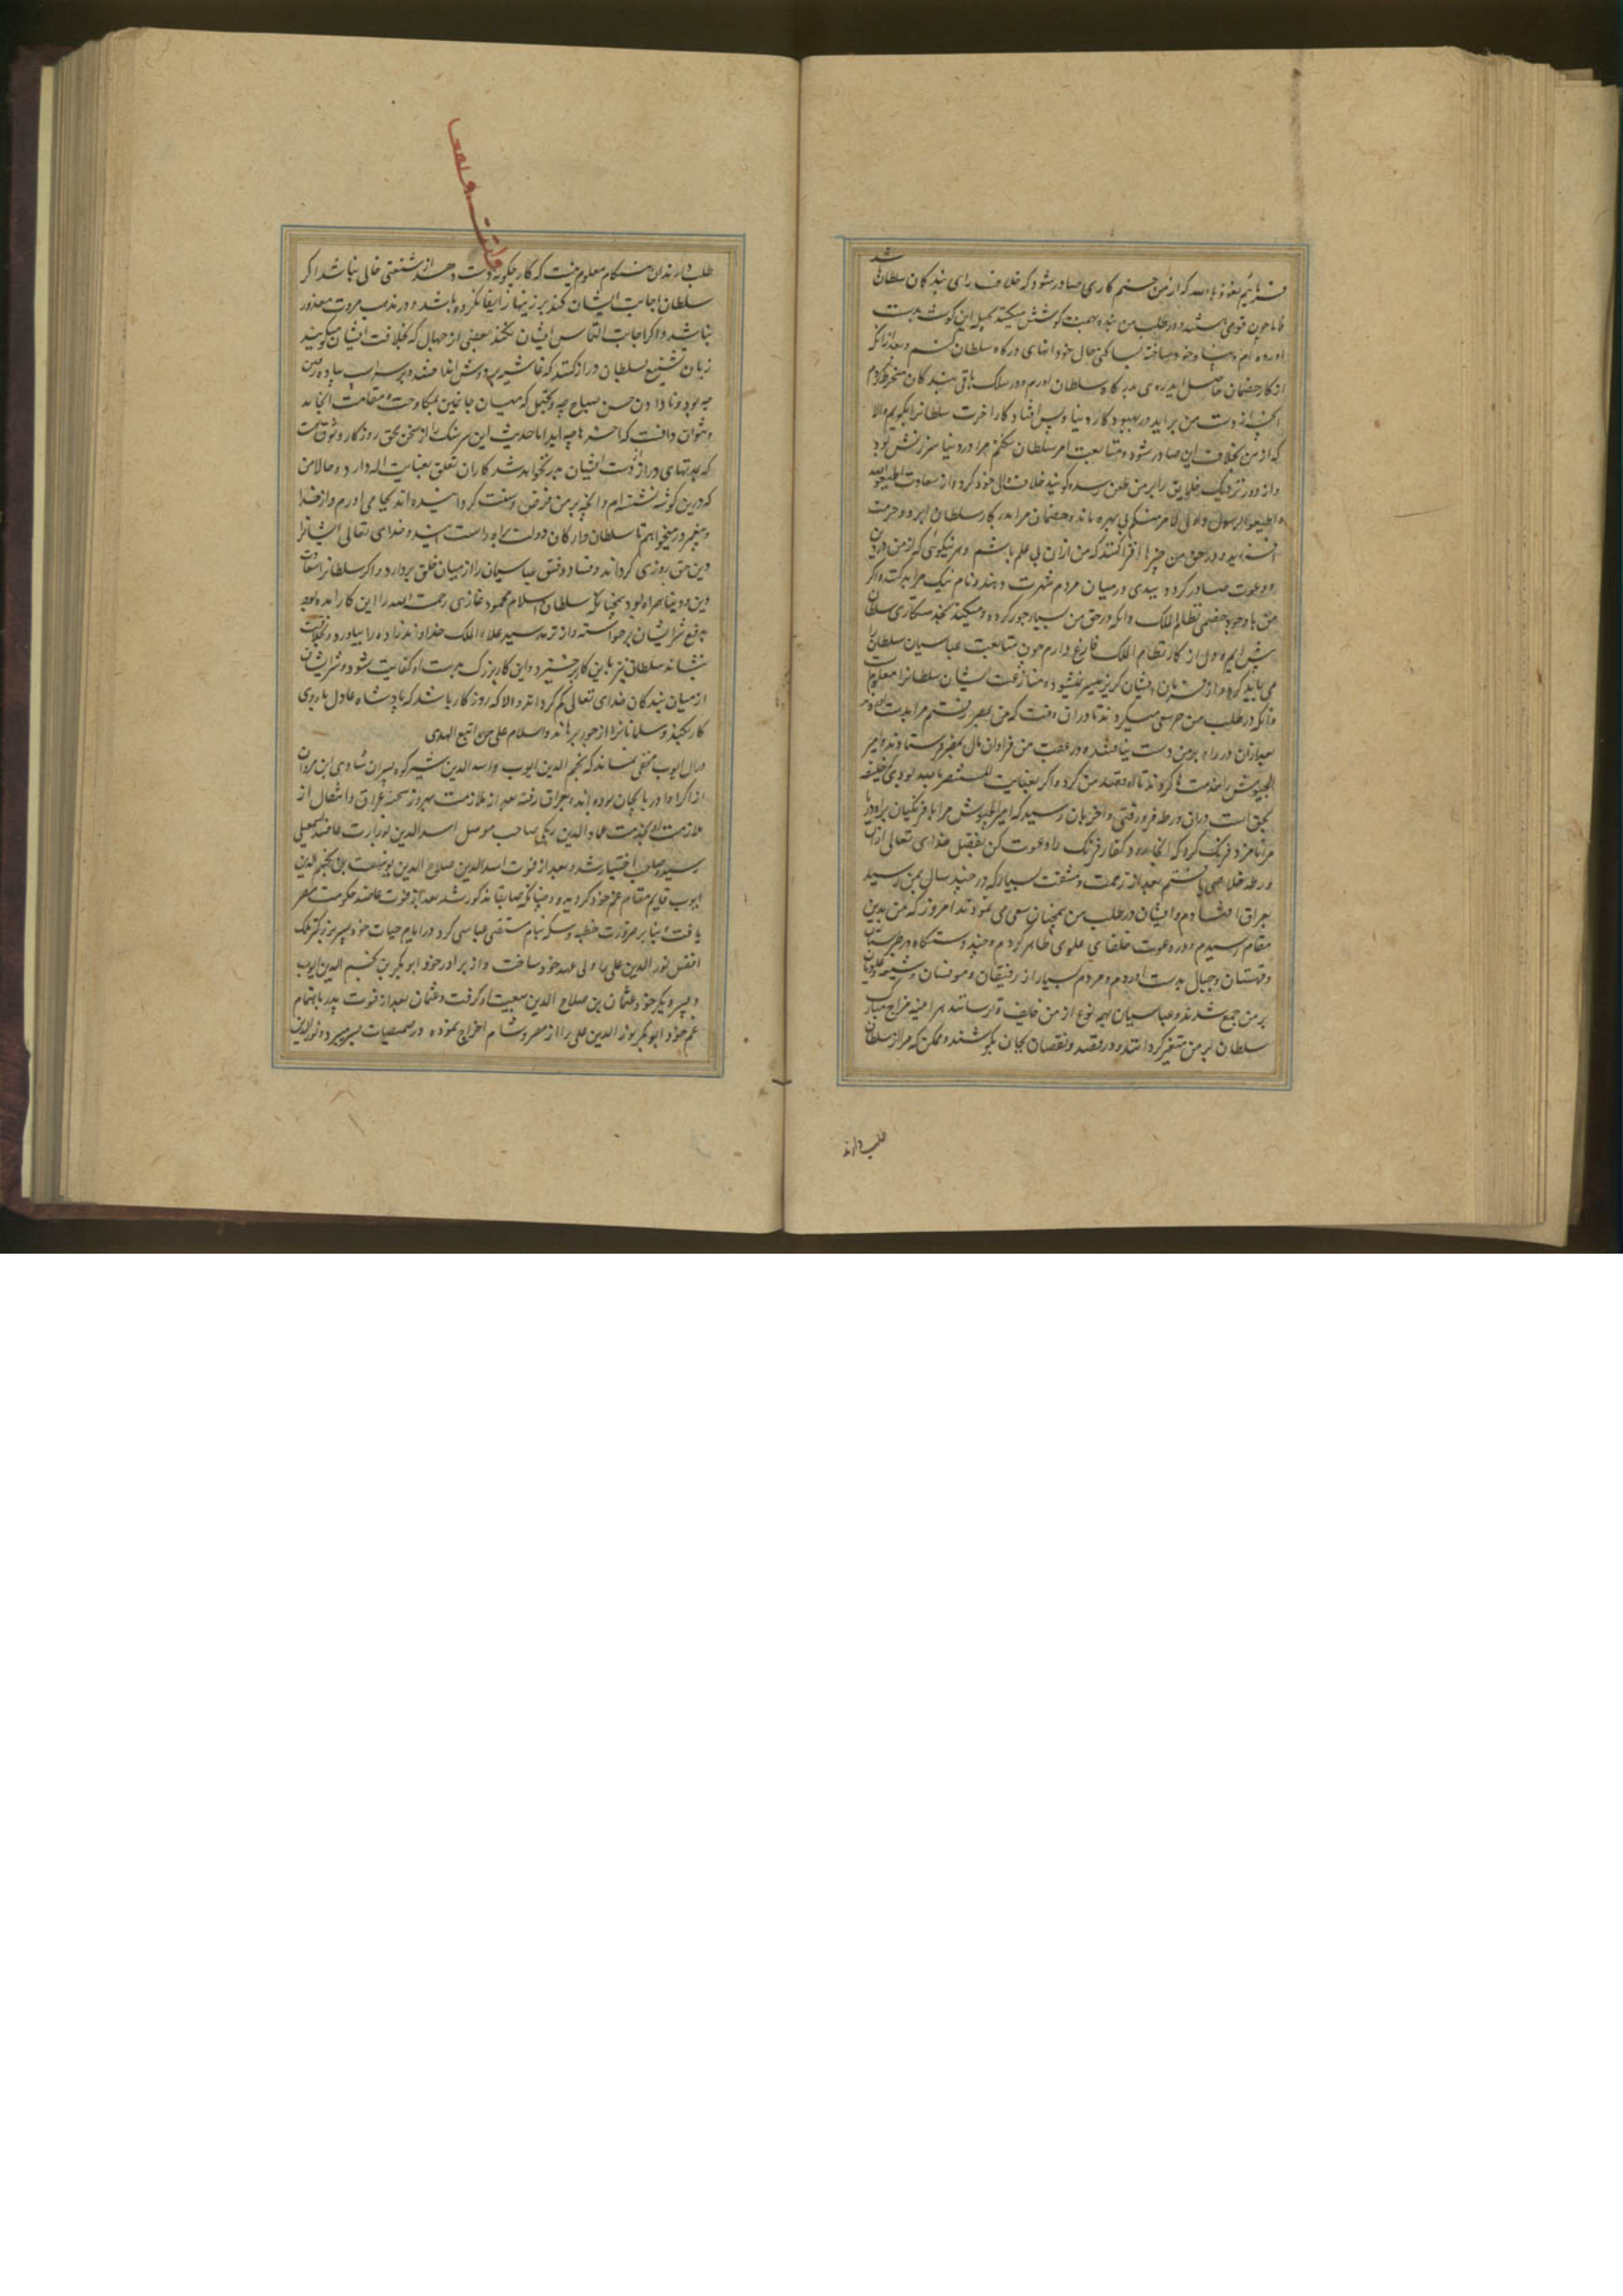 فرمایم نعوذ بالله که از من حسن کاری صادر شود که خلاف رای بندکان سلطان باشد
فاما چون قومی هستند و در طلب من بنده بهمت کوشش میکنند بحیله این کوشه بدست
اورده ام و پناه خود ساخته تا که حال خود انهای درکاه سلطان کنم و بعد ازانکه
از کار خصمان حاصل اید روی بدرکاه سلطان اورم و در سلک باقی بندکان منخرط کردم
انچه از دست من براید در بهبود کار دنیا و پس افتاد کار اخرت سلطانرا بکویم والا
که از من بخلاف این صادر شود و متابعت امر سلطان نکنم مرا در دنیا سرزنش بود
و از دور و نزدیک خلایق را بر من طعن رسد کویند خلاف والی خود کرد و از سعادت اطیعوا الله
و اطیعوا الرسول و اولی الامر منکم بی بهره ماند و خصمان مرا بدرکار سلطان ابرو و حرمت
افزاید و در حق من چیزها افترا کنند که من ازان بی علم باشم و هر نیکوئی که از من در دین
و دعوت صادر کردد ببدی در میان مردم شهرت دهند و نام نیک مرا بد کنند و اکر
من با وجود خصمی نظام الملک و انکه در حق من بسیار جور کرده و میکند بخدمتکاری سلطان
پیش ایم و دل از کار نظام الملک فارغ دارم چون متابعت عباسیان سلطان را
می باید کرد و از فرمان ایشان کریز میسر نمیشود و منازعت ایشان سلطانرا معلوم است
و انکه در طلب من حرسی میکردند تا دران وقت که من بمصر رفتم مرا بدست اورند
بعد ازان در راه بر من دست نیافتند و در عقب من فراوان مال بمصر فرستادند و امیر
الجیوش را خدمت ها کردند تا او قصد من کرد و اکر بعنایت المستنصر بالله نبودی که خلیفه
بحق است دران ورطه فرو رفتی و اخر بدان رسید که امیر الجیوش مرا با فرنکیان براه دریا
مرا نامزد فرنک کرد که انجا رود کفار فرنک را دعوت کن بفضل خدای تعالی ازان
ورطه خلاصی یافتم بعد از زحمت و مشقت بسیار که در چند سال بمن رسید
بعراق افتادم و ایشان در طلب من همچنان سعی می نمودند امروز که من بدین
مقام رسیدم و در دعوت خلفای علوی ظاهر کردم و چند دستکاه در طبرستان
و قهستان و جبال بدست اوردم و مردم بسیار از رفیقان و مومنان و شیعه علویان
بر من جمع شدند و عباسیان بهمه نوع از من خایف و ترسانند هراینه مزاج مبارک
سلطان بر من متغیر کردانند و در قصد و نقصان بجان بکوشند و ممکن که مرا از سلطان
طلب دارند
طلب دارند ان هنکام معلوم نیست که کار چکونه دست دهد از شنعتی خالی نباشد اکر
سلطان اجابت ایشان کند بر زینهار ایفا نکرده باشد و در مذهب مروت معذور
نباشد و اکر اجابت التماس ایشان نکند بعضی از جهال که بخلافت ایشان میکویند
زبان تشنیع بسلطان دراز کنند که غاشیه بر دوش انداختند و بر سر اسب پیاده رفتن
چه بود و نادادن حسن صباح چه و یحتمل که میان جانبین بمکاوحت و مقامت انجامد
و نتوان دانست که اخرها چه اید اما حدیث این سرسنک را از سخن بحق روزکار وثوق نیست
که بمدتهای دراز از دست ایشان بدر نخواهد شد کار ان تعلق بعنایت اله دارد و حالا من
که درین کوشه نشسته ام و انچه بر من فرض و سنت کردانیده اند بجا می اورم و از خدا
و پیغمبر درمیخواهم تا سلطان و ارکان دولت براه راست ایند و خدای تعالی ایشانرا
دین حق روزی کرداند و فساد و فسق عباسیان را از میان خلق بردارد و اکر سلطانرا سعادت
دین و دنیا همراه بود همچنانکه سلطان اسلام محمود غازی رحمت الله را این کار امده بود
بدفع شر ایشان برخواسته و از ترمد سید علاء الملک خداوندزاده را بیاورد و بخلافت
بنشاند سلطان نیز باین کار برخیزد و این کار بزرک بدست او کفایت شود و شر ایشان
از میان بندکان خدای تعالی کم کرداند و الا که روزکار باشد که پادشاه عادل بروی
کار بکند و مسلمانانرا از جور برهاند والسلام علی من اتبع الهدی
و ال ایوب مخفی نماند که نجم الدین ایوب و اسد الدین شیرکوه پسران شادی ابن مروان
از اکراد اذربایجان بوده اند و بعراق رفته بعد از ملازمت بهروز شحنه عراق و انتقال از
ملازمت او بخدمت عماد الدین زنکی صاحب موصل اسد الدین بوزارت عاضد اسمعیلی
رسید و صاحب اختیار شد و بعد از فوت اسد الدین صلاح الدین یوسف بن نجم الدین
ایوب قایم مقام عم خود کردید و چنانکه سابقا مذکور شد بعد از فوت عاضد حکومت مصر
یافت بنا بر ضرورت خطبه و سکه بنام مستضی عباسی کرد در ایام حیات خود پسر بزرکتر ملک
افضل نور الدین علی را ولی عهد خود ساخت و از برادر خود ابوبکر بن نجم الدین ایوب
و پسر دیکر خود عثمان بن صلاح الدین بیعت او کرفت و عثمان بعد از فوت پدر باهتمام
عم خود ابوبکر نور الدین علی را از مصر و شام اخراج نموده در صمیصات بسر میبرد و نور الدین